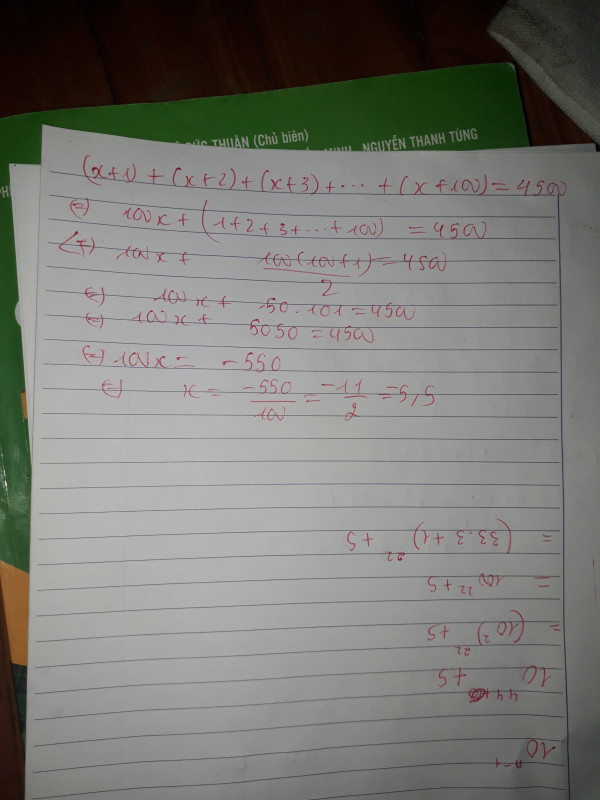 ĐỨC THUẬN (Chủ biên)
MINH, NGUYỄN THANH TÙNG
(x+1) + (x+2) + (x+3) + ... + (x+100) = 4500
⇔ 100x + (1+2+3+...+100) = 4500
⇔ 100x + 100(100+1)/2 = 4500
⇔ 100x + 50.101 = 4500
⇔ 100x + 5050 = 4500
⇔ 100x = -550
⇔ x = -550/100 = -11/2 = -5,5
10^n-1
10^44 +5
= (10^2)^22 +5
= 100^22 +5
= (33.3 +1)^22 +5